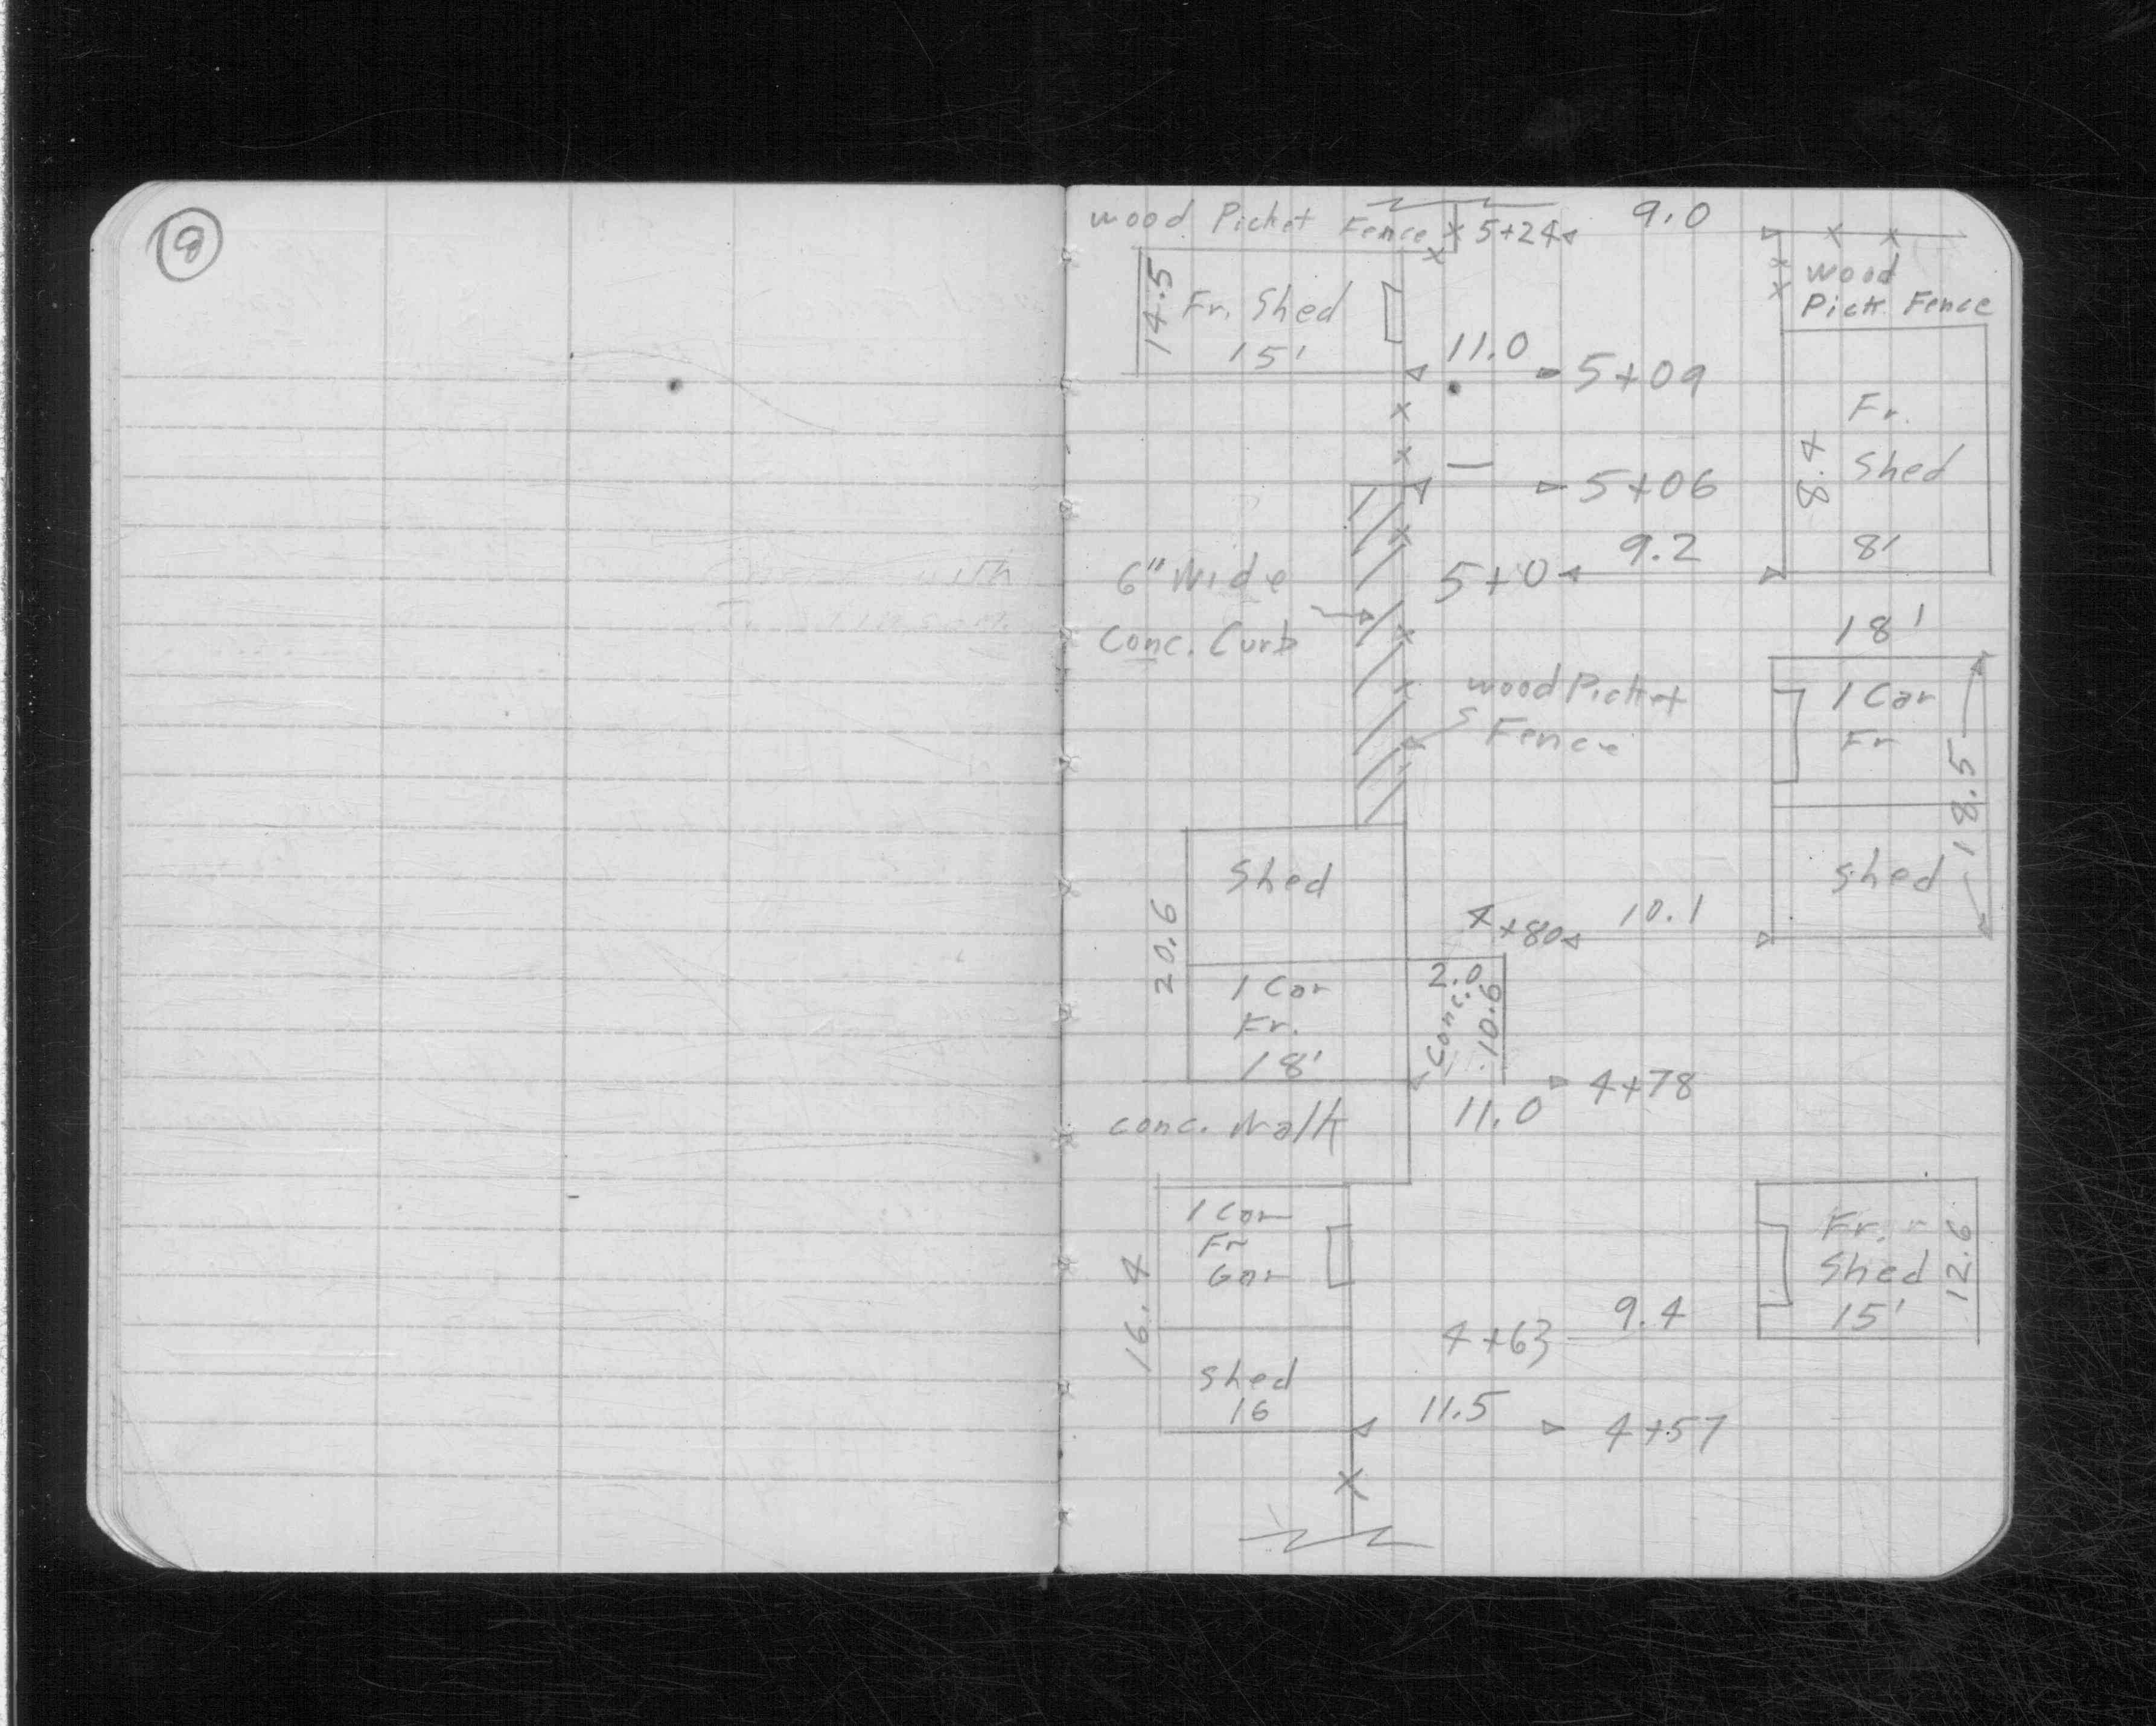 8
wood Picket Fence x 5+24 9.0
14.5
Fr. Shed
15'
wood
Pick Fence
11.0
5+09
Fr.
Shed
8.4
8'
5+06
9.2
5+0
6" Wide
Conc. Curb
wood Picket
Fence
18'
1 Car
Fr
18.5
shed
Shed
20.6
4+80 10.1
1 Car
Fr.
18'
2.0
Conc.
10.6
4+78
11.0
conc. Walk
1 Car
Fr
Gar
16.4
Shed
16
Fr.
Shed
15'
12.6
9.4
4+63
11.5
4+57